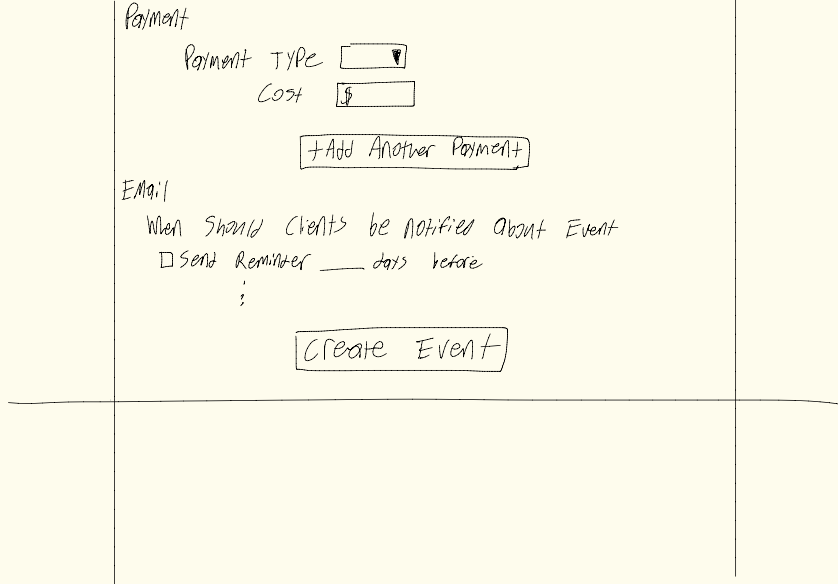 Payment
Payment Type
Cost $
+Add Another Payment
Email
When Should Clients be notified about Event
Send Reminder ____ days before
Create Event